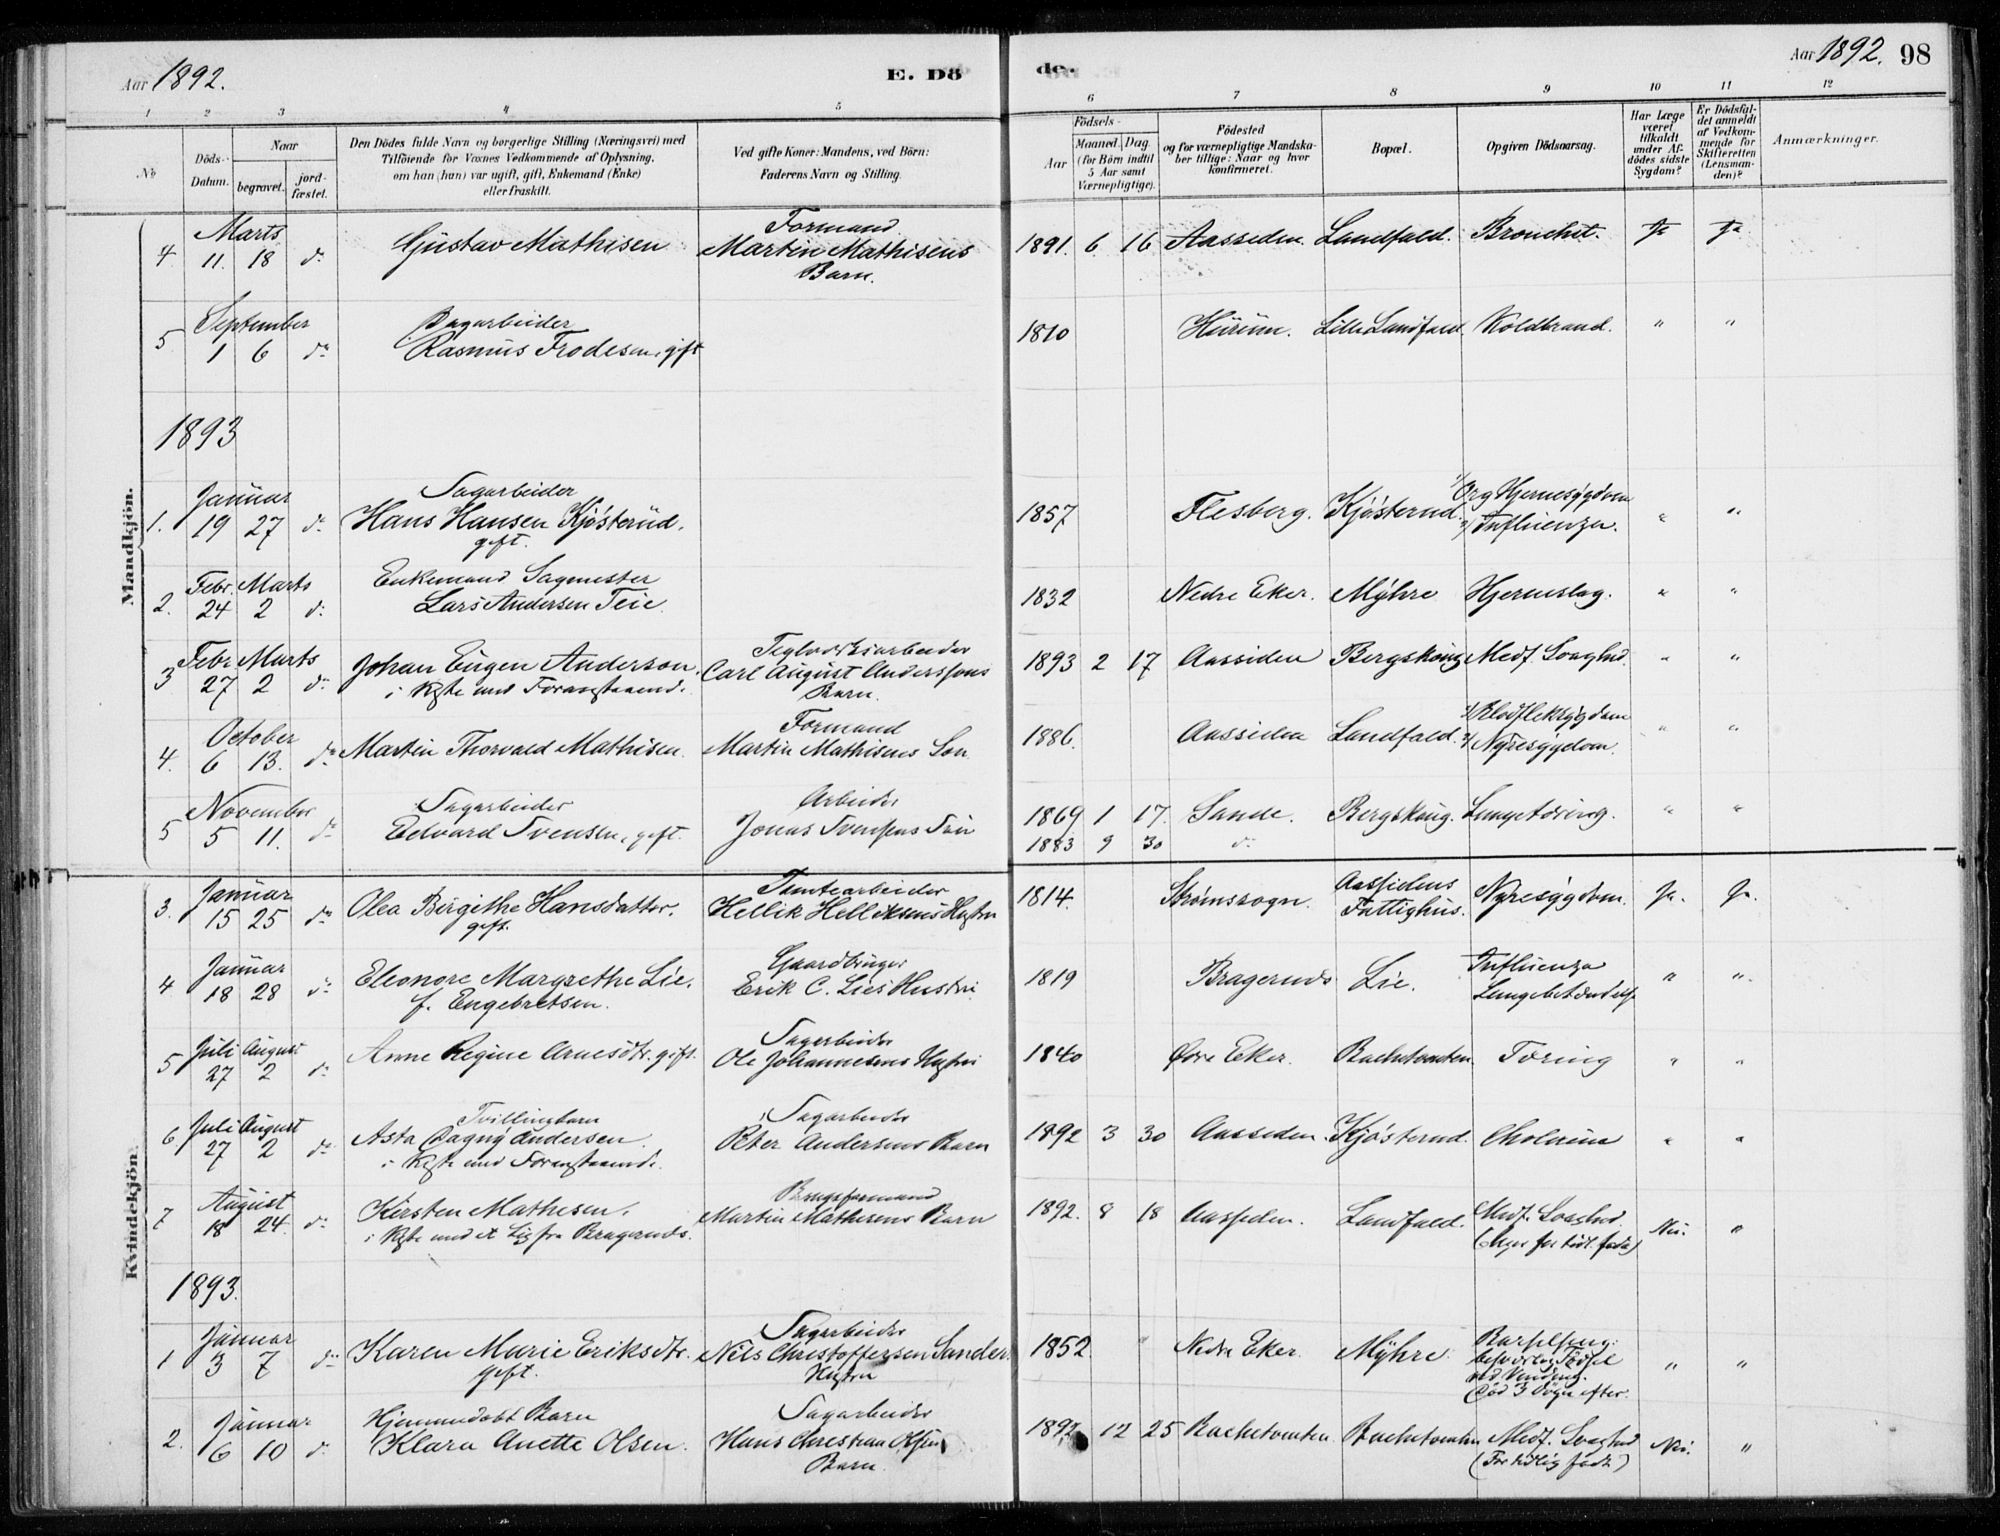 Aar 1892.
E. Dö
de.
Aar 1892. 98
1 2 3 4 5 6 7 8 9 10 11 12
No
Döds-Datum.
Naar
begravet.
jordfæstet.
Den Dödes fulde Navn og borgerlige Stilling (Næringsvei) med
Tilföiende for Voxnes Vedkommende af Oplysning,
om han (hun) var ugift, gift, Enkemand (Enke)
eller fraskilt.
Ved gifte Koner: Mandens, ved Börn:
Faderens Navn og Stilling.
Födsels-
Aar
Maaned. Dag.
(for Börn indtil
5 Aar samt
Værnepligtige).
Födested
og for værnepligtige Mandskaber tillige: Naar og hvor
konfirmeret.
Bopæl.
Opgiven Dödsaarsag.
Har Læge
været
tilkaldt
under Afdödes sidste
Sygdom?
Er Dödsfaldet anmeldt
af Vedkommende for
Skifteretten
(Lensmanden)?
Anmærkninger.
Mandkjön.
Marts Formand
4. 11. 18 do Gustav Mathisen Martin Mathisens 1891. 6 16 Aassiden. Landfald. Bronchit. Ja Ja
Barn.
September Bagarbeider
5 1 6 do Rasmus Frodesen, gift 1810 Hurum. Lille Landfald Koldbrand. " "
1893
Januar Sagarbeider 1/ Org Hjernesygdom
1. 19 27 do Hans Hansen Kjøsterud. 1857 Flesberg. Kjøsterud. 2/ Influenza. " "
gift.
Febr. Marts Enkemand Sagmester
2. 24 2 do Lars Andersen Teie. 1832 Nedre Eker. Myhre Hjerneslag. " "
Febr. Marts Teglværksarbeider
3 27 2 do Johan Eugen Anderson. Carl August Anderssons 1893 2 17 Aassiden Bergskoug Medf. Svaghed. " "
i Kiste med Foranstaaende. Barn.
October Formand 1/ Blodfleksygdom
4. 6 13. do Martin Thorvald Mathisen. Martin Mathisens Søn 1886. Aassiden Landfald. 2/ Nyresygdom. " "
November Sagarbeider Arbeider
5 5 11. do Edvard Svensen, gift. Jonas Svensens Søn 1869 1 17. Sande. Bergskoug. Lungetæring. " "
1883 9 30 do
Kvindekjön.
Januar Tomtearbeider Aassidens
3. 15 25 do Olea Birgithe Hansdatter. Hellik Helliksens Hustru 1814. Strømssogn. Fattighus. Nyresygdom. Ja. Ja.
gift.
Januar Gaardbruger Influenza
4 18 28 do Eleonore Margrethe Lie. Erik C. Lies Hustru 1819 Bragernes Lie. Lungebetændelse " "
f. Engebretsen.
Juli August Sagarbeider
5 27 2 do Anne Regine Arnesdtr. gift. Ole Johannesens Hustru 1840 Øvre Eker. Bachetomten Tæring " "
Juli August Tvillingbarn Sagarbeider
6 27 2 do Asta Dagny Andersen. Peter Andersens Barn 1892 3 30 Aassiden. Kjøsterud. Cholerine " "
i Kiste med Foranstaaende.
August Brugsformand
7 18 24. do Kirsten Mathisen. Martin Mathisens Barn 1892. 8 18 Aassiden. Landfald. Medf. Svaghed. Nei. "
i Kiste med et Lig fra Bragernes. for tidl. født)
1893.
Januar Sagarbeider Barselseng:
1 3 7 do Karen Marie Eriksdtr. Nils Christoffersen Sander 1852 " Nedre Eker. Myhre. " "
gift. Hustru ved Vending.
død 3 Døgn efter.
Januar Hjemmedøbt Barn Sagarbeider
2. 6 10 do Klara Anette Olsen. Hans Christian Olsens 1892 12 25 Bachetomten. Bachetomten Medf. Svaghed Nei. "
Barn. (For tidlig født)